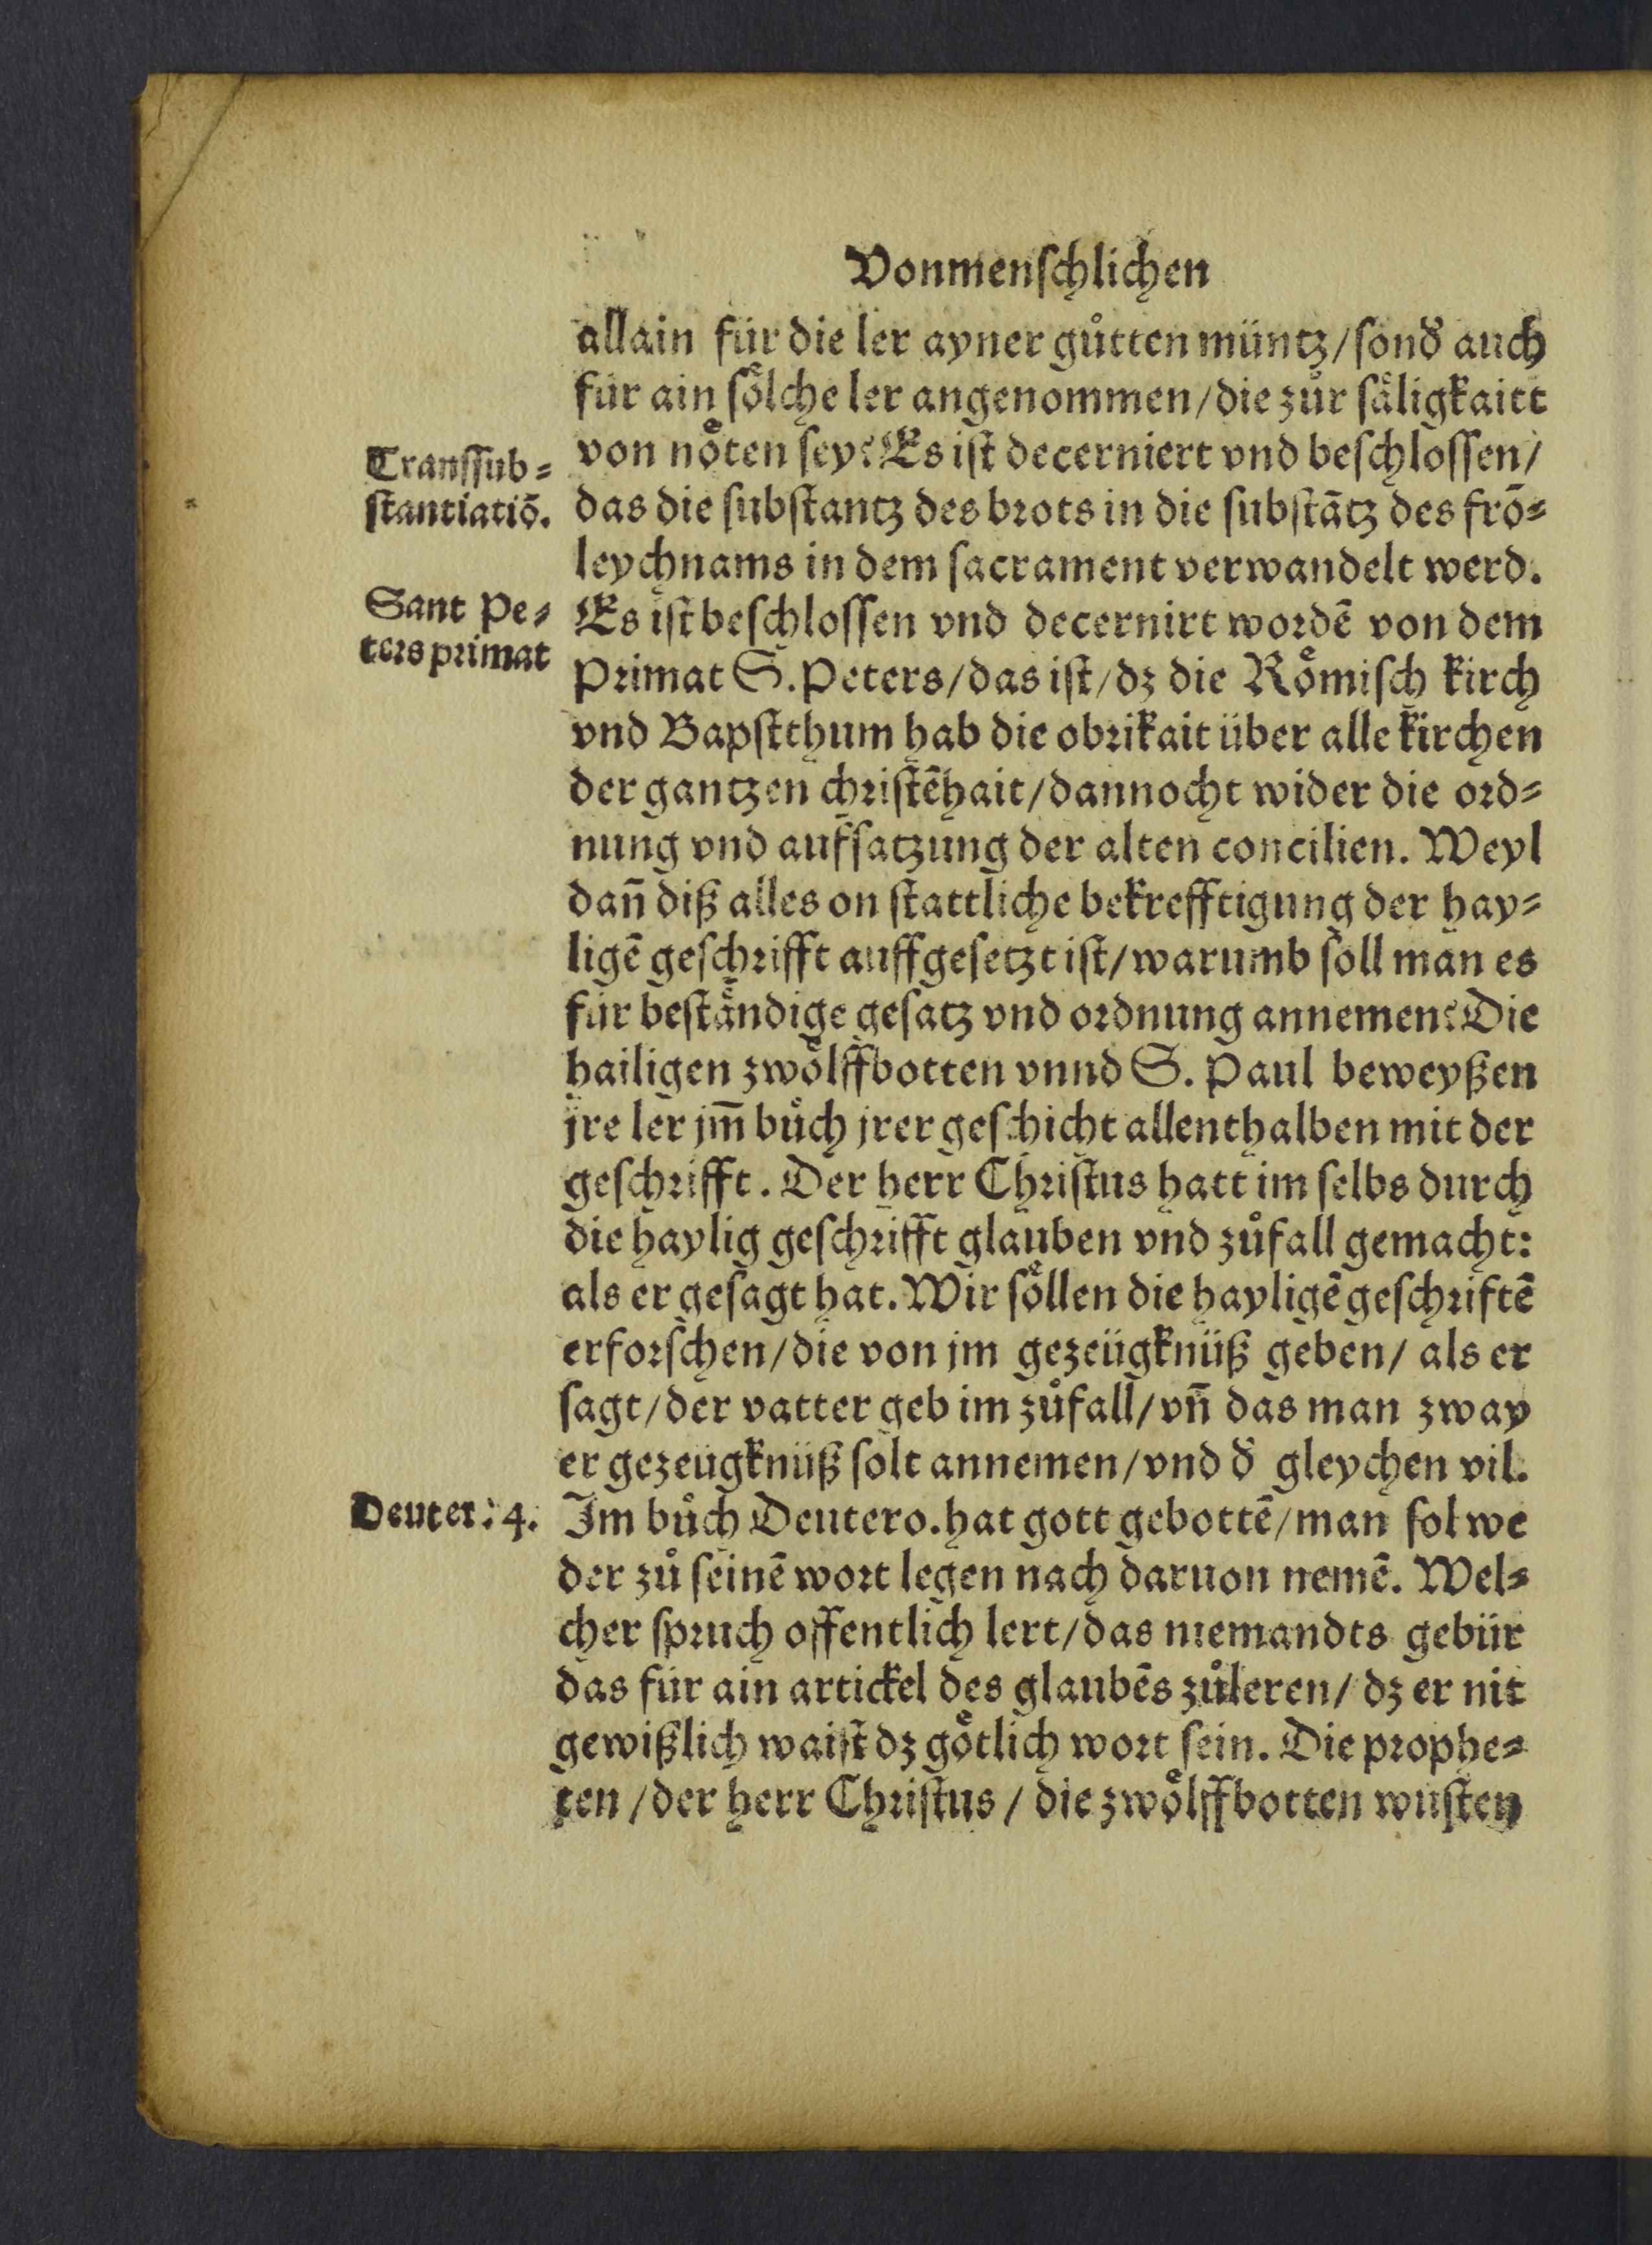 Vonmenſchlichen
allain für die ler ayner gůtten müntz/ſond̕ auch
für ain ſoͤlche ler angenommen/die zůr ſaͤligkaitt
von noͤten ſey? Es iſt decerniert vnd beſchloſſen/
Transſub⸗
ſtantiatiō.
das die ſubſtantz des brots in die ſubſtātz des frō⸗
leychnams in dem ſacrament verwandelt werd.
Sant Pe⸗
ters primat
Es iſt beſchloſſen vnd decernirt wordē von dem
Primat S. Peters/das iſt/dz die Roͤmiſch kirch
vnd Bapſtthum hab die obrikait über alle kirchen
der gantzen chriſtēhait/dannocht wider die ord⸗
nung vnd aufſatzung der alten concilien. Weyl
dan̄ diß alles on ſtattliche bekrefftigung der hay⸗
ligē geſchrifft auffgeſetzt iſt/warumb ſoll man es
für beſtaͤndige geſatz vnd ordnung annemen? Die
hailigen zwoͤlffbotten vnnd S. Paul beweyßen
jre ler jm̄ bůch jrer geſchicht allenthalben mit der
geſchrifft. Der herr Chriſtus hatt im ſelbs durch
die haylig geſchrifft glauben vnd zůfall gemacht:
als er geſagt hat. Wir ſoͤllen die hayligē geſchriftē
erforſchen/die von jm gezeügknüß geben/ als er
ſagt/der vatter geb im zůfall/vn̄ das man zway
er gezeügknüß ſolt annemen/vnd d̕ gleychen vil.
Deuter: 4.
Im bůch Deutero. hat gott gebottē/man ſol we
der zů ſeinē wort legen nach daruon nemē. Wel⸗
cher ſpruch offentlich lert/das niemandts gebür
das für ain artickel des glaubēs zůleren/ dz er nit
gewißlich waiſt dz goͤtlich wort ſein. Die prophe⸗
ten /der herr Chriſtus / die zwoͤlffbotten wuſten